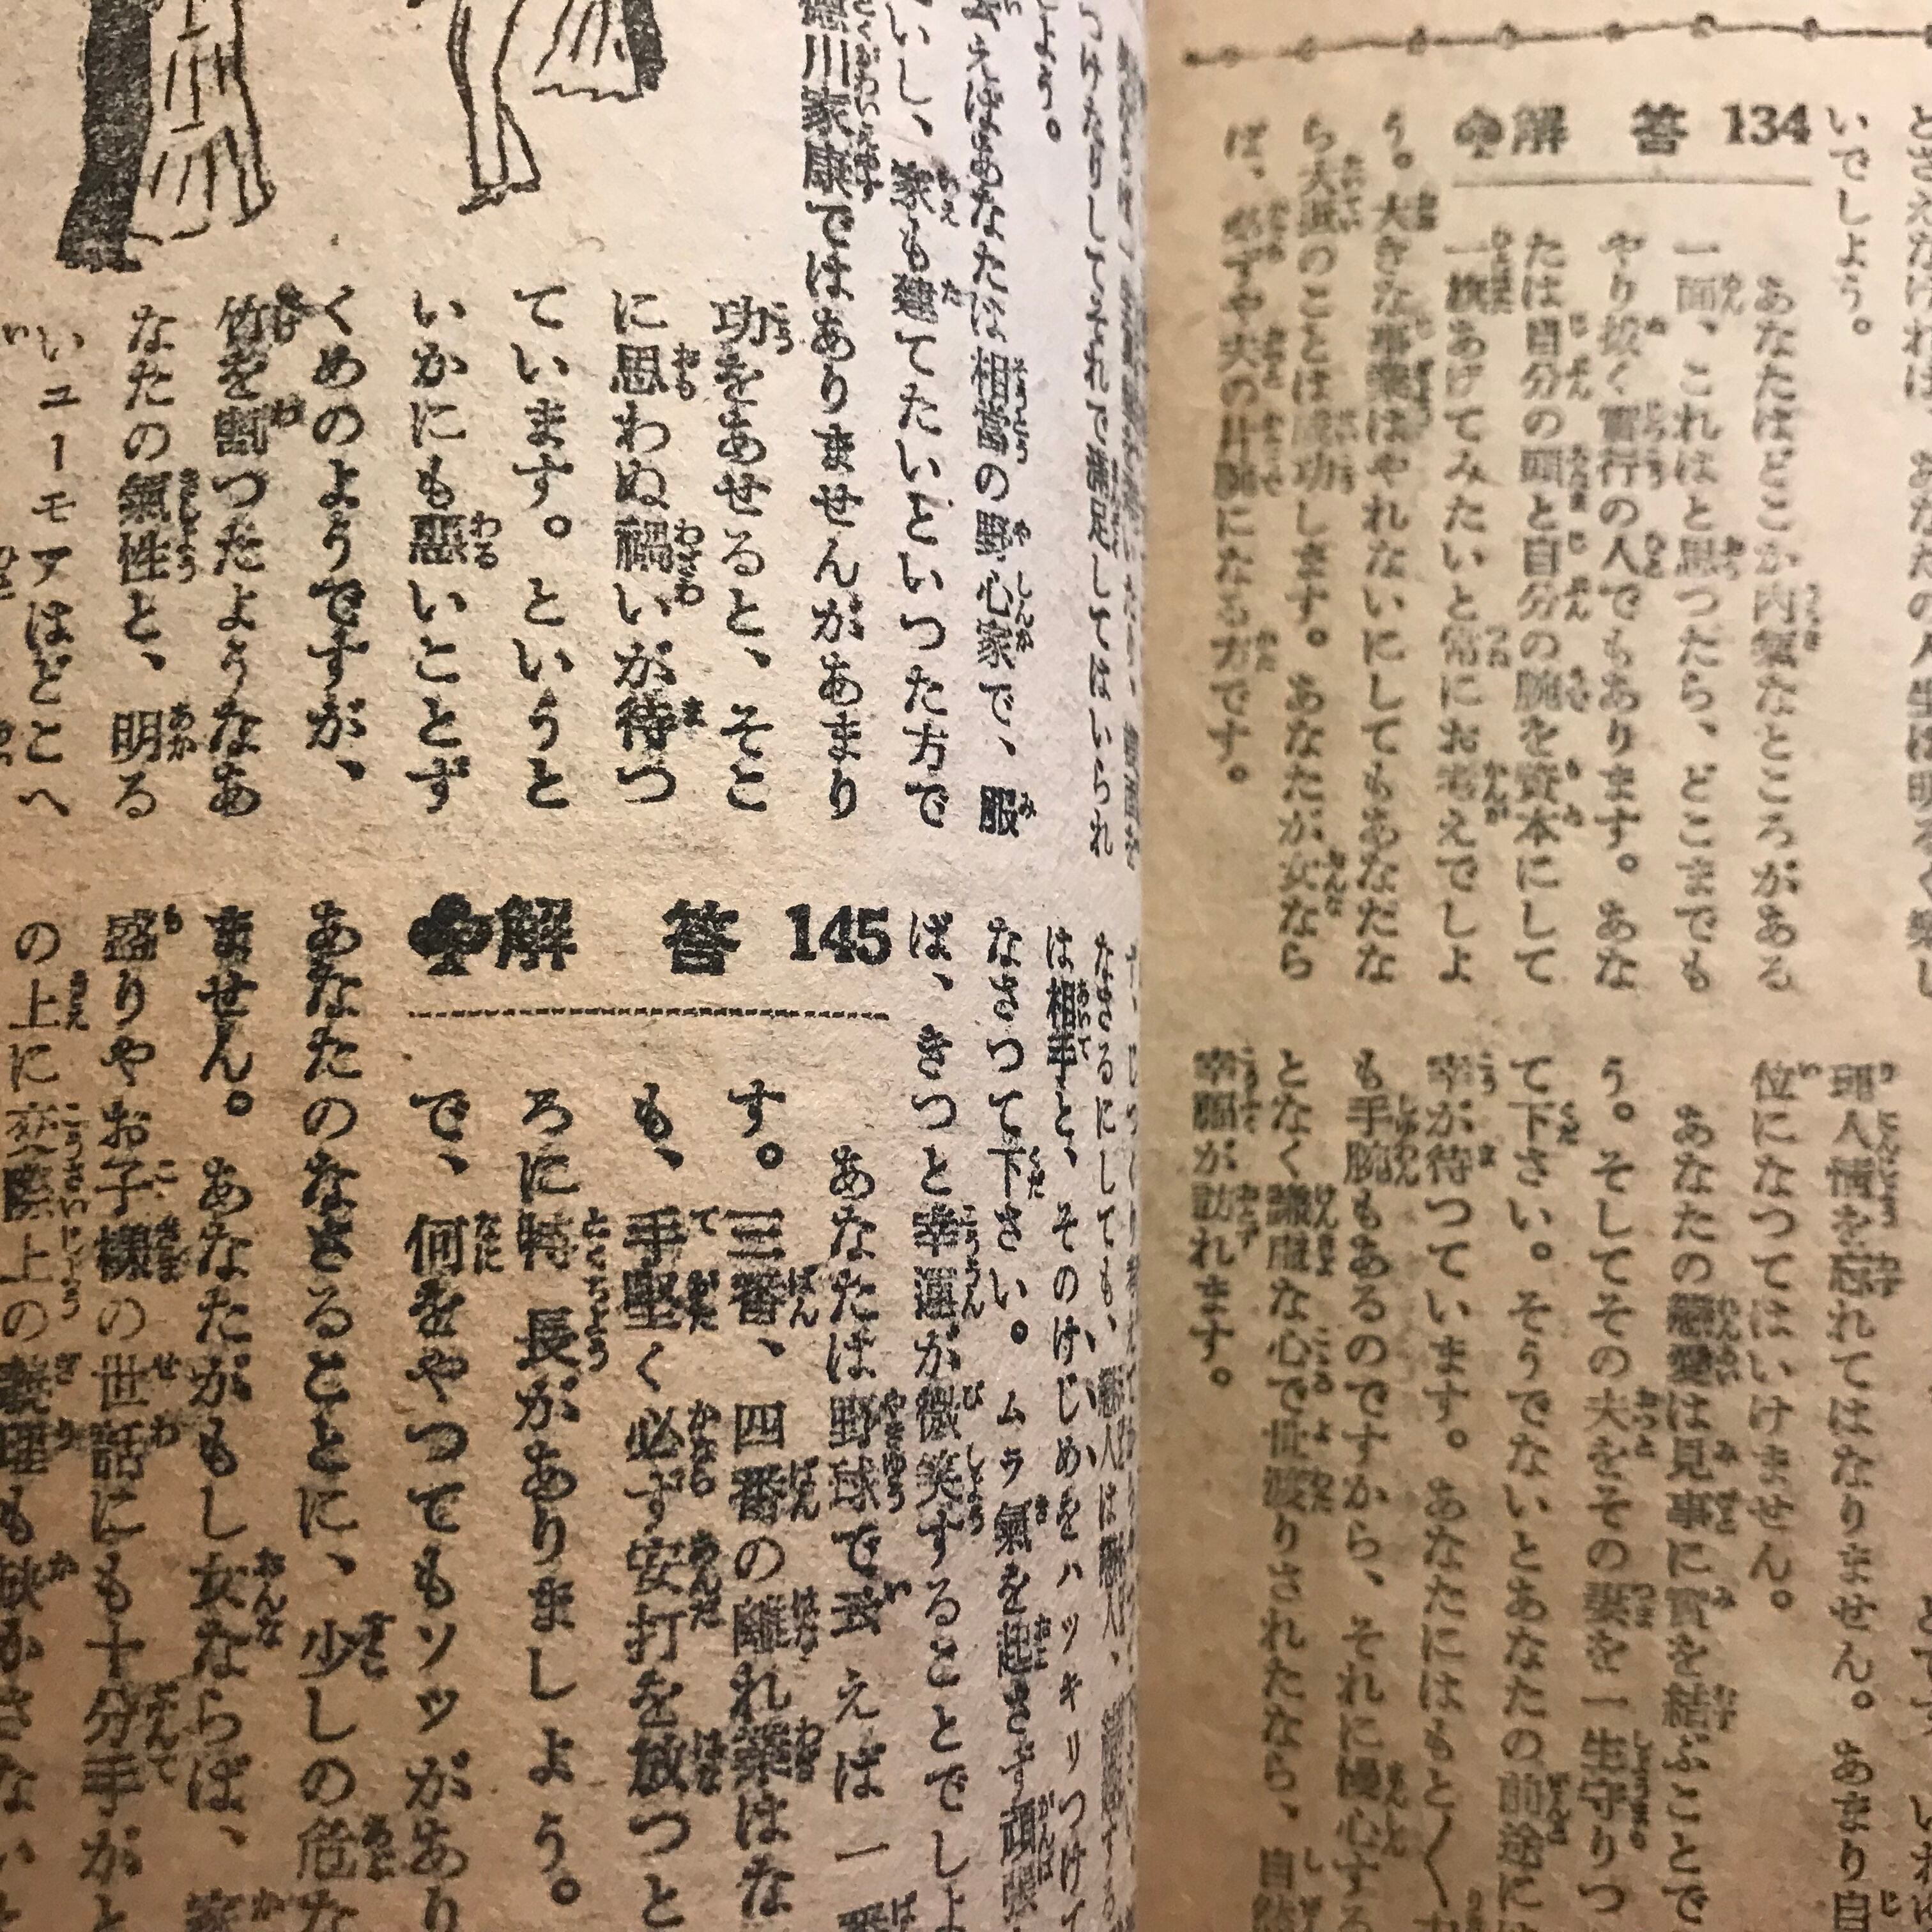 いでしょう。
解 答 134
あなたはどこか内氣なところがある
一面、これはと思つたら、どこまでも
やり抜く實行の人でもあります。あな
たは自分の頭と自分の腕を資本にして
一旗あげてみたいと常にお考えでしょ
う。大きな事業はやれないにしてもあなたな
ら大抵のことは成功します。あなたが女なら
ば、必ずや夫の片腕になる方です。
理人情を忘れてはなりません。あまり自
位になつてはいけません。
あなたの戀愛は見事に實を結ぶことで
う。そしてその夫をその妻を一生守りつ
て下さい。そうでないとあなたの前途に
幸が待つています。あなたにはもと〱
も手腕もあるのですから、それに慢心する
となく謙虚な心で世渡りされたなら、自然
幸福が訪れます。
つけたりしてそれで滿足してはいられ
しょう。
あなたは相當の野心家で、服
いし、家も建てたいといつた方で
徳川家康ではありませんがあまり
功をあせると、そこ
に思わぬ禍いが待つ
ています。というと
いかにも悪いことず
くめのようですが、
竹を割つたようなあ
なたの氣性と、明る
いユーモアはどこへ
なさるにしても、戀人は戀人、
は相手と、そのけじめをハッキリつけて
なさつて下さい。ムラ氣を起さず頑張
ば、きつと幸運が微笑することでしょ
解 答 145
あなたは野球で云えば一
三番、四番の離れ業はな
す。
も、手堅く必ず安打を放つと
ろに特長がありましょう。
で、何をやつてもソツがあり
あなたのなさることに、少しの危な
ません。あなたがもし女ならば、家
盛りやお子様の世話にも十分手がと
の上に交際上の義理も缺かさない